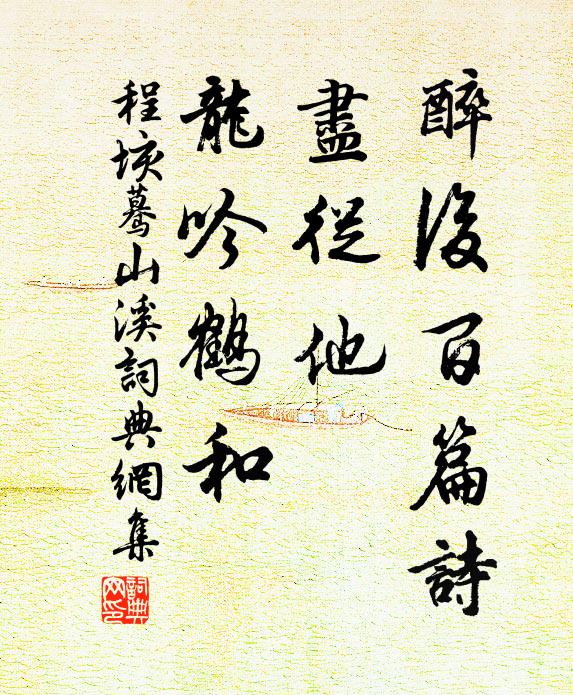 醉後百篇詩
盡從他
龍吟鶴和
程垓驀山溪詞典網集
詞典网印